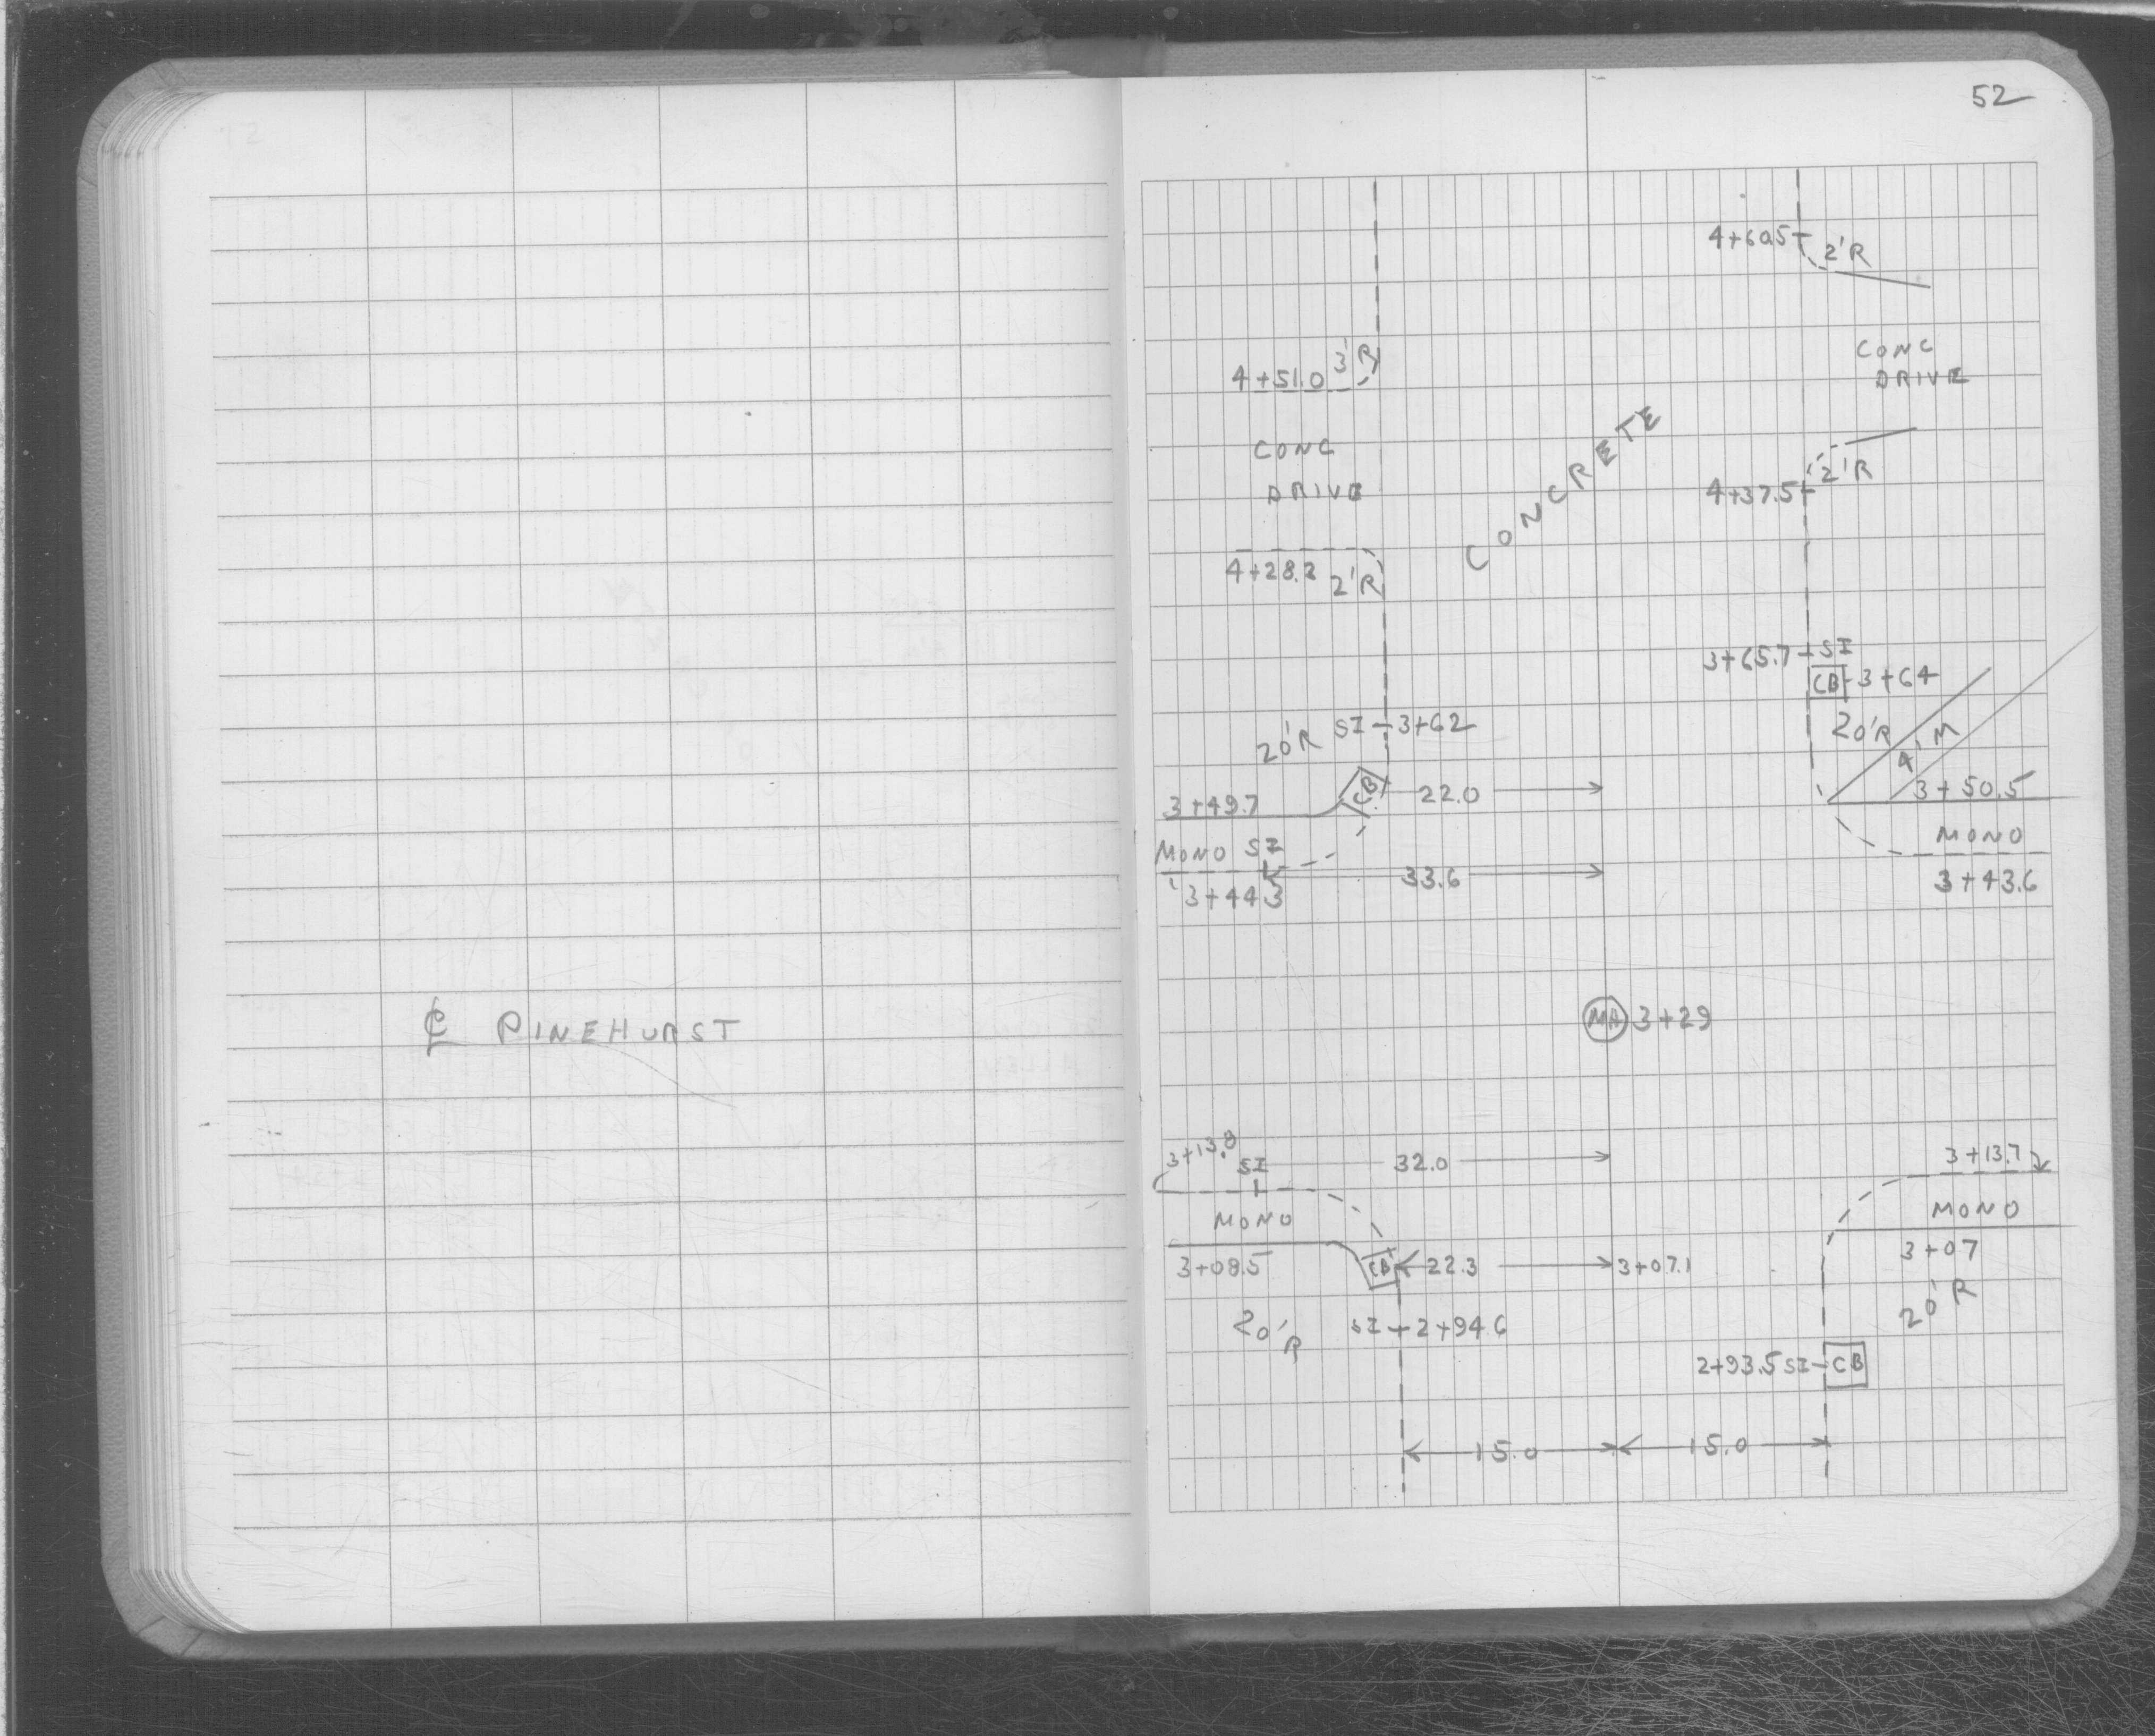 52
4+60.5 2'R
4+51.0 3'R
CONC
DRIVE
CONC
DRIVE
CONCRETE
4+37.5 2'R
4+28.2 2'R
3+65.7 SI
CB 3+64
20'R SI 3+62
20'R 4' M
3+49.7 CB 22.0 3+50.5
MONO SI MONO
3+44.3 33.6 3+43.6
℄ PINEHURST
MH 3+29
3+13.8 SI 32.0 3+13.7
MONO MONO
3+08.5 CB 22.3 3+07.1 3+07
20'R SI 2+94.6 20'R
2+93.5 SI CB
15.0 15.0